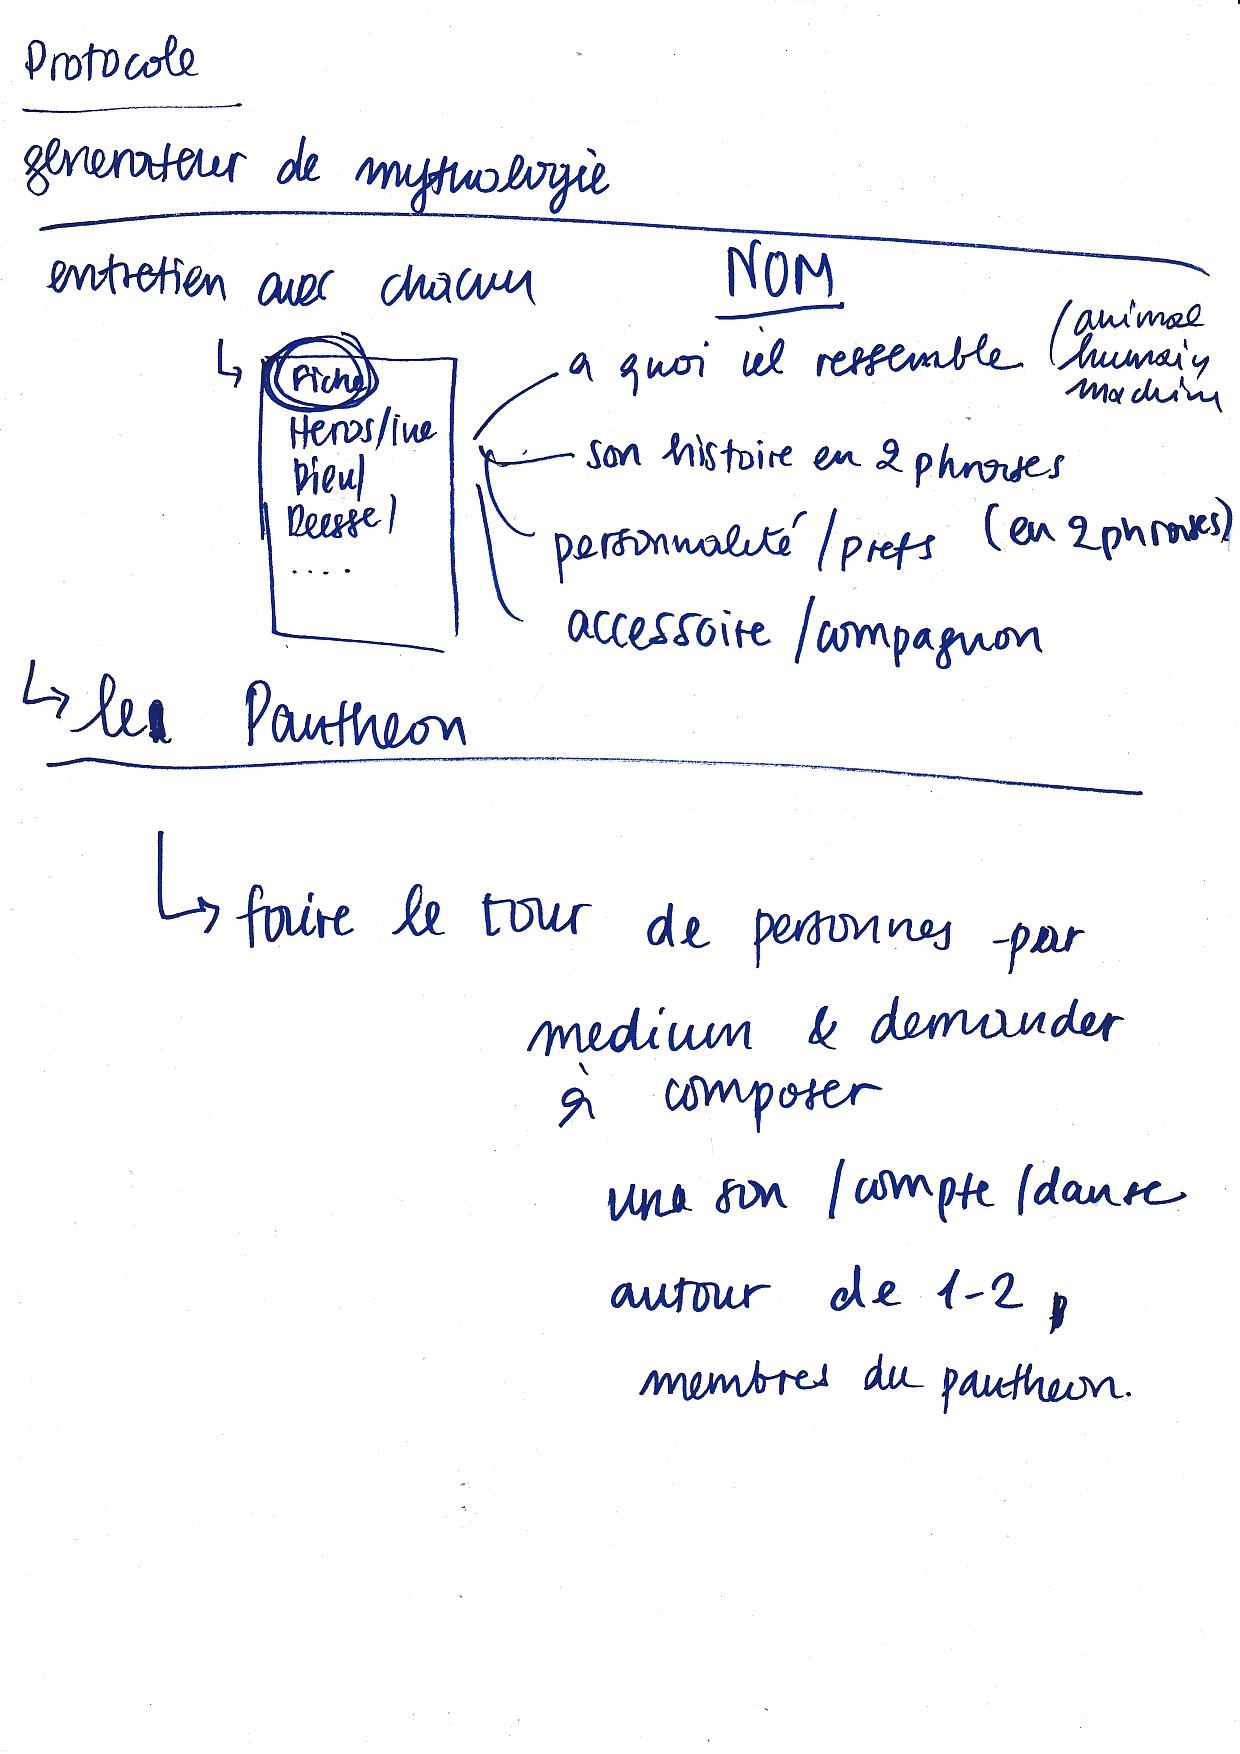 Protocole
génerateur de mythologie
entretien avec chacun
NOM
↳ Fiche
Heros/ine
Dieu/
Deesse/
....
a quoi iel ressemble (animal
humain
machin
son histoire en 2 phrases
personnalité/prefs (en 2 phrases)
accessoire/compagnon
↳ le Pantheon
↳ faire le tour de personnes par
medium & demander
à composer
une son /compte/danse
autour de 1-2
membres du pantheon.